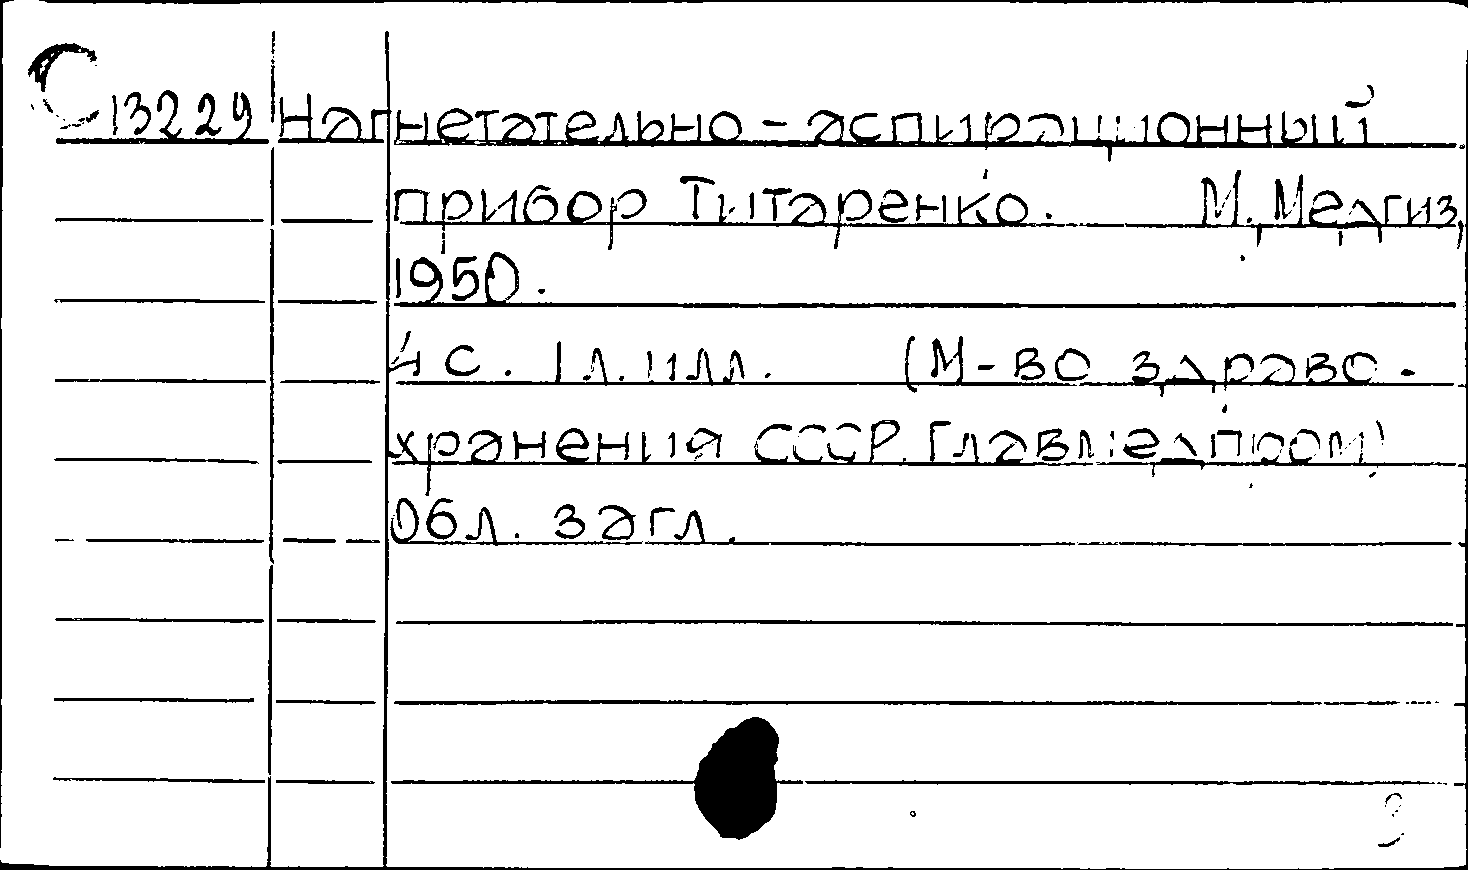 С 13229 Нагнетательно-аспирационный
прибор Титаренко. М., Медгиз,
1950.
4 с. 1 л. илл. (М-во здраво-
хранения СССР. Главмедпром)
Обл. загл.